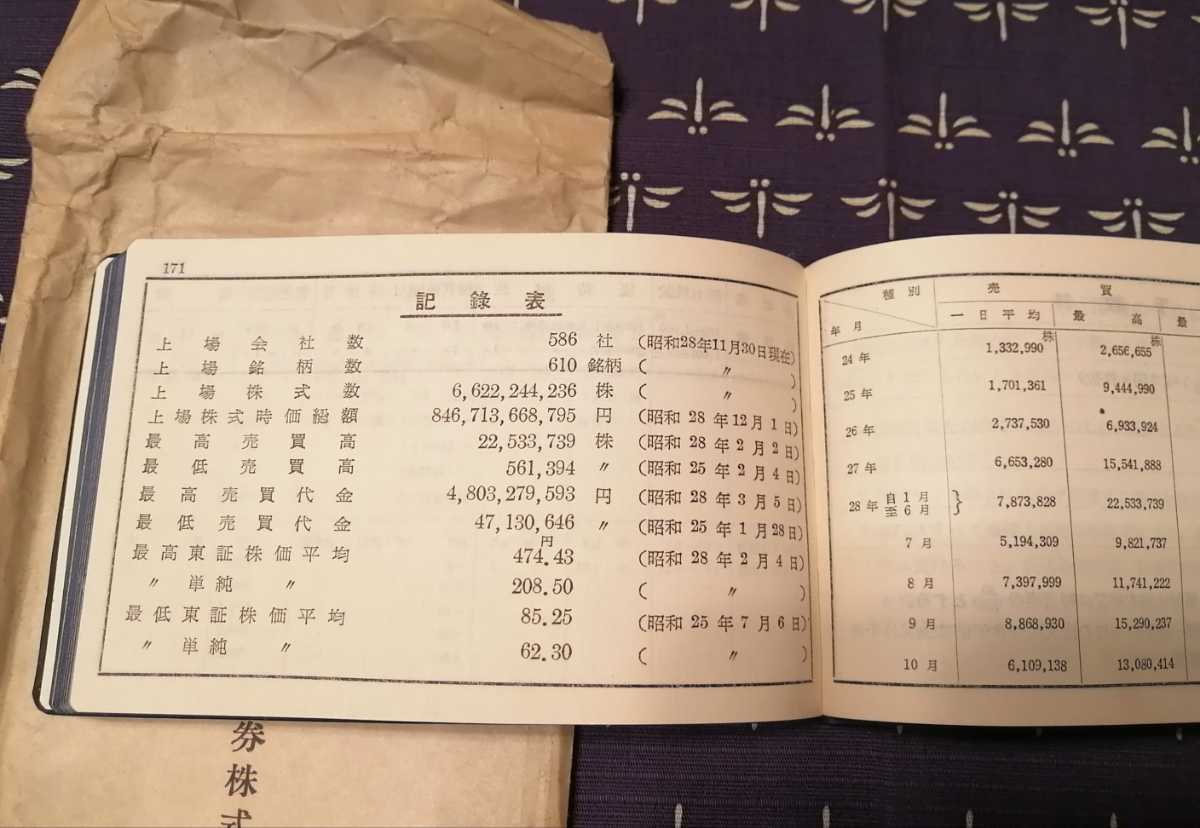 171
記録表
上場会社数 586 社 (昭和28年11月30日現在)
上場銘柄数 610 銘柄 ( 〃 )
上場株式数 6,622,244,236 株 ( 〃 )
上場株式時価総額 846,713,668,795 円 (昭和 28 年 12 月 1 日)
最高売買高 22,533,739 株 (昭和 28 年 2 月 2 日)
最低売買高 561,394 〃 (昭和 25 年 2 月 4 日)
最高売買代金 4,803,279,593 円 (昭和 28 年 3 月 5 日)
最低売買代金 47,130,646 〃 (昭和 25 年 1 月 28 日)
円
最高東証株価平均 474.43 (昭和 28 年 2 月 4 日)
〃 単純 〃 208.50 ( 〃 )
最低東証株価平均 85.25 (昭和 25 年 7 月 6 日)
〃 単純 〃 62.30 ( 〃 )
種別 売買
年月 一日平均 最高 最
株 株
24 年 1,332,990 2,656,655
25 年 1,701,361 9,444,990
26 年 2,737,530 6,933,924
27 年 6,653,280 15,541,888
28 年 自 1 月 至 6 月 } 7,873,828 22,533,739
7 月 5,194,309 9,821,737
8 月 7,397,999 11,741,222
9 月 8,868,930 15,290,237
10 月 6,109,138 13,080,414
券株式